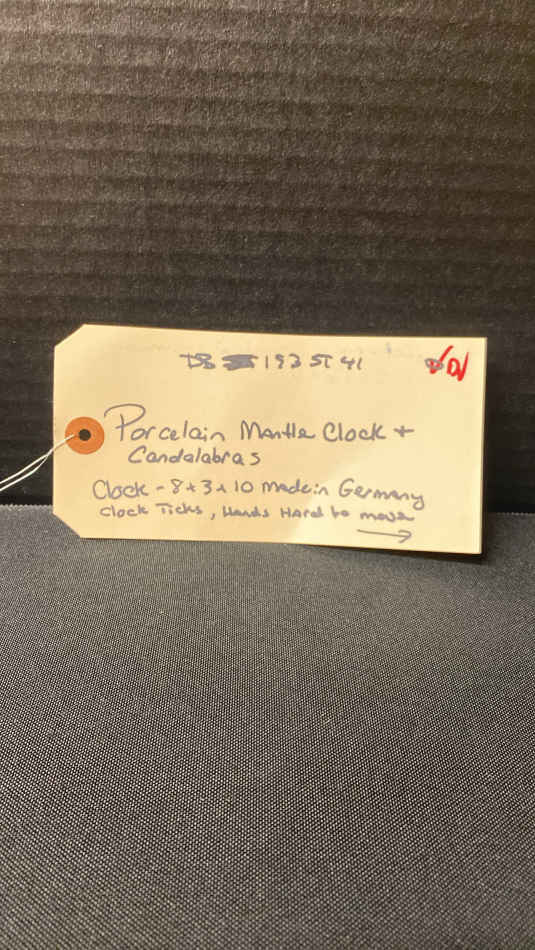 DS 192 ST 41
Porcelain Mantle Clock +
Candalabras
Clock - 8 x 3 x 10 made in Germany
Clock Ticks, Hands Hard to move
→